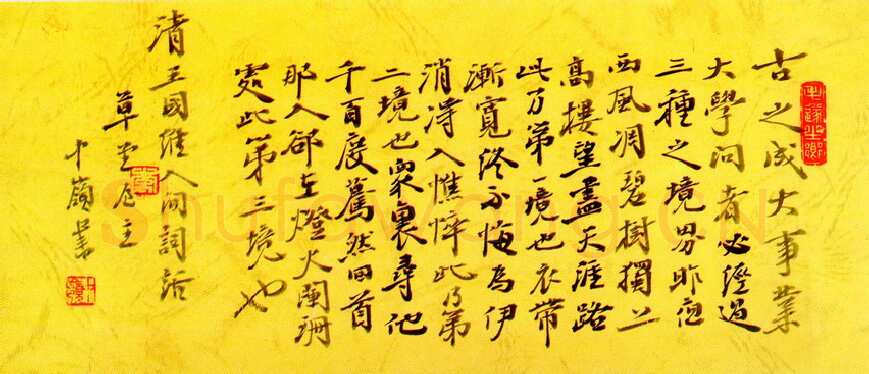 古之成大事業
大學问者必經過
三種之境界昨夜
西風凋碧樹獨上
高樓望盡天涯路
此乃第一境也衣帶
漸寬終不悔為伊
消得人憔悴此乃第
二境也眾裏尋他
千百度驀然回首
那人卻在燈火闌珊
處此第三境也
清王國維人间詞话
草堂主
Shufawang.CN